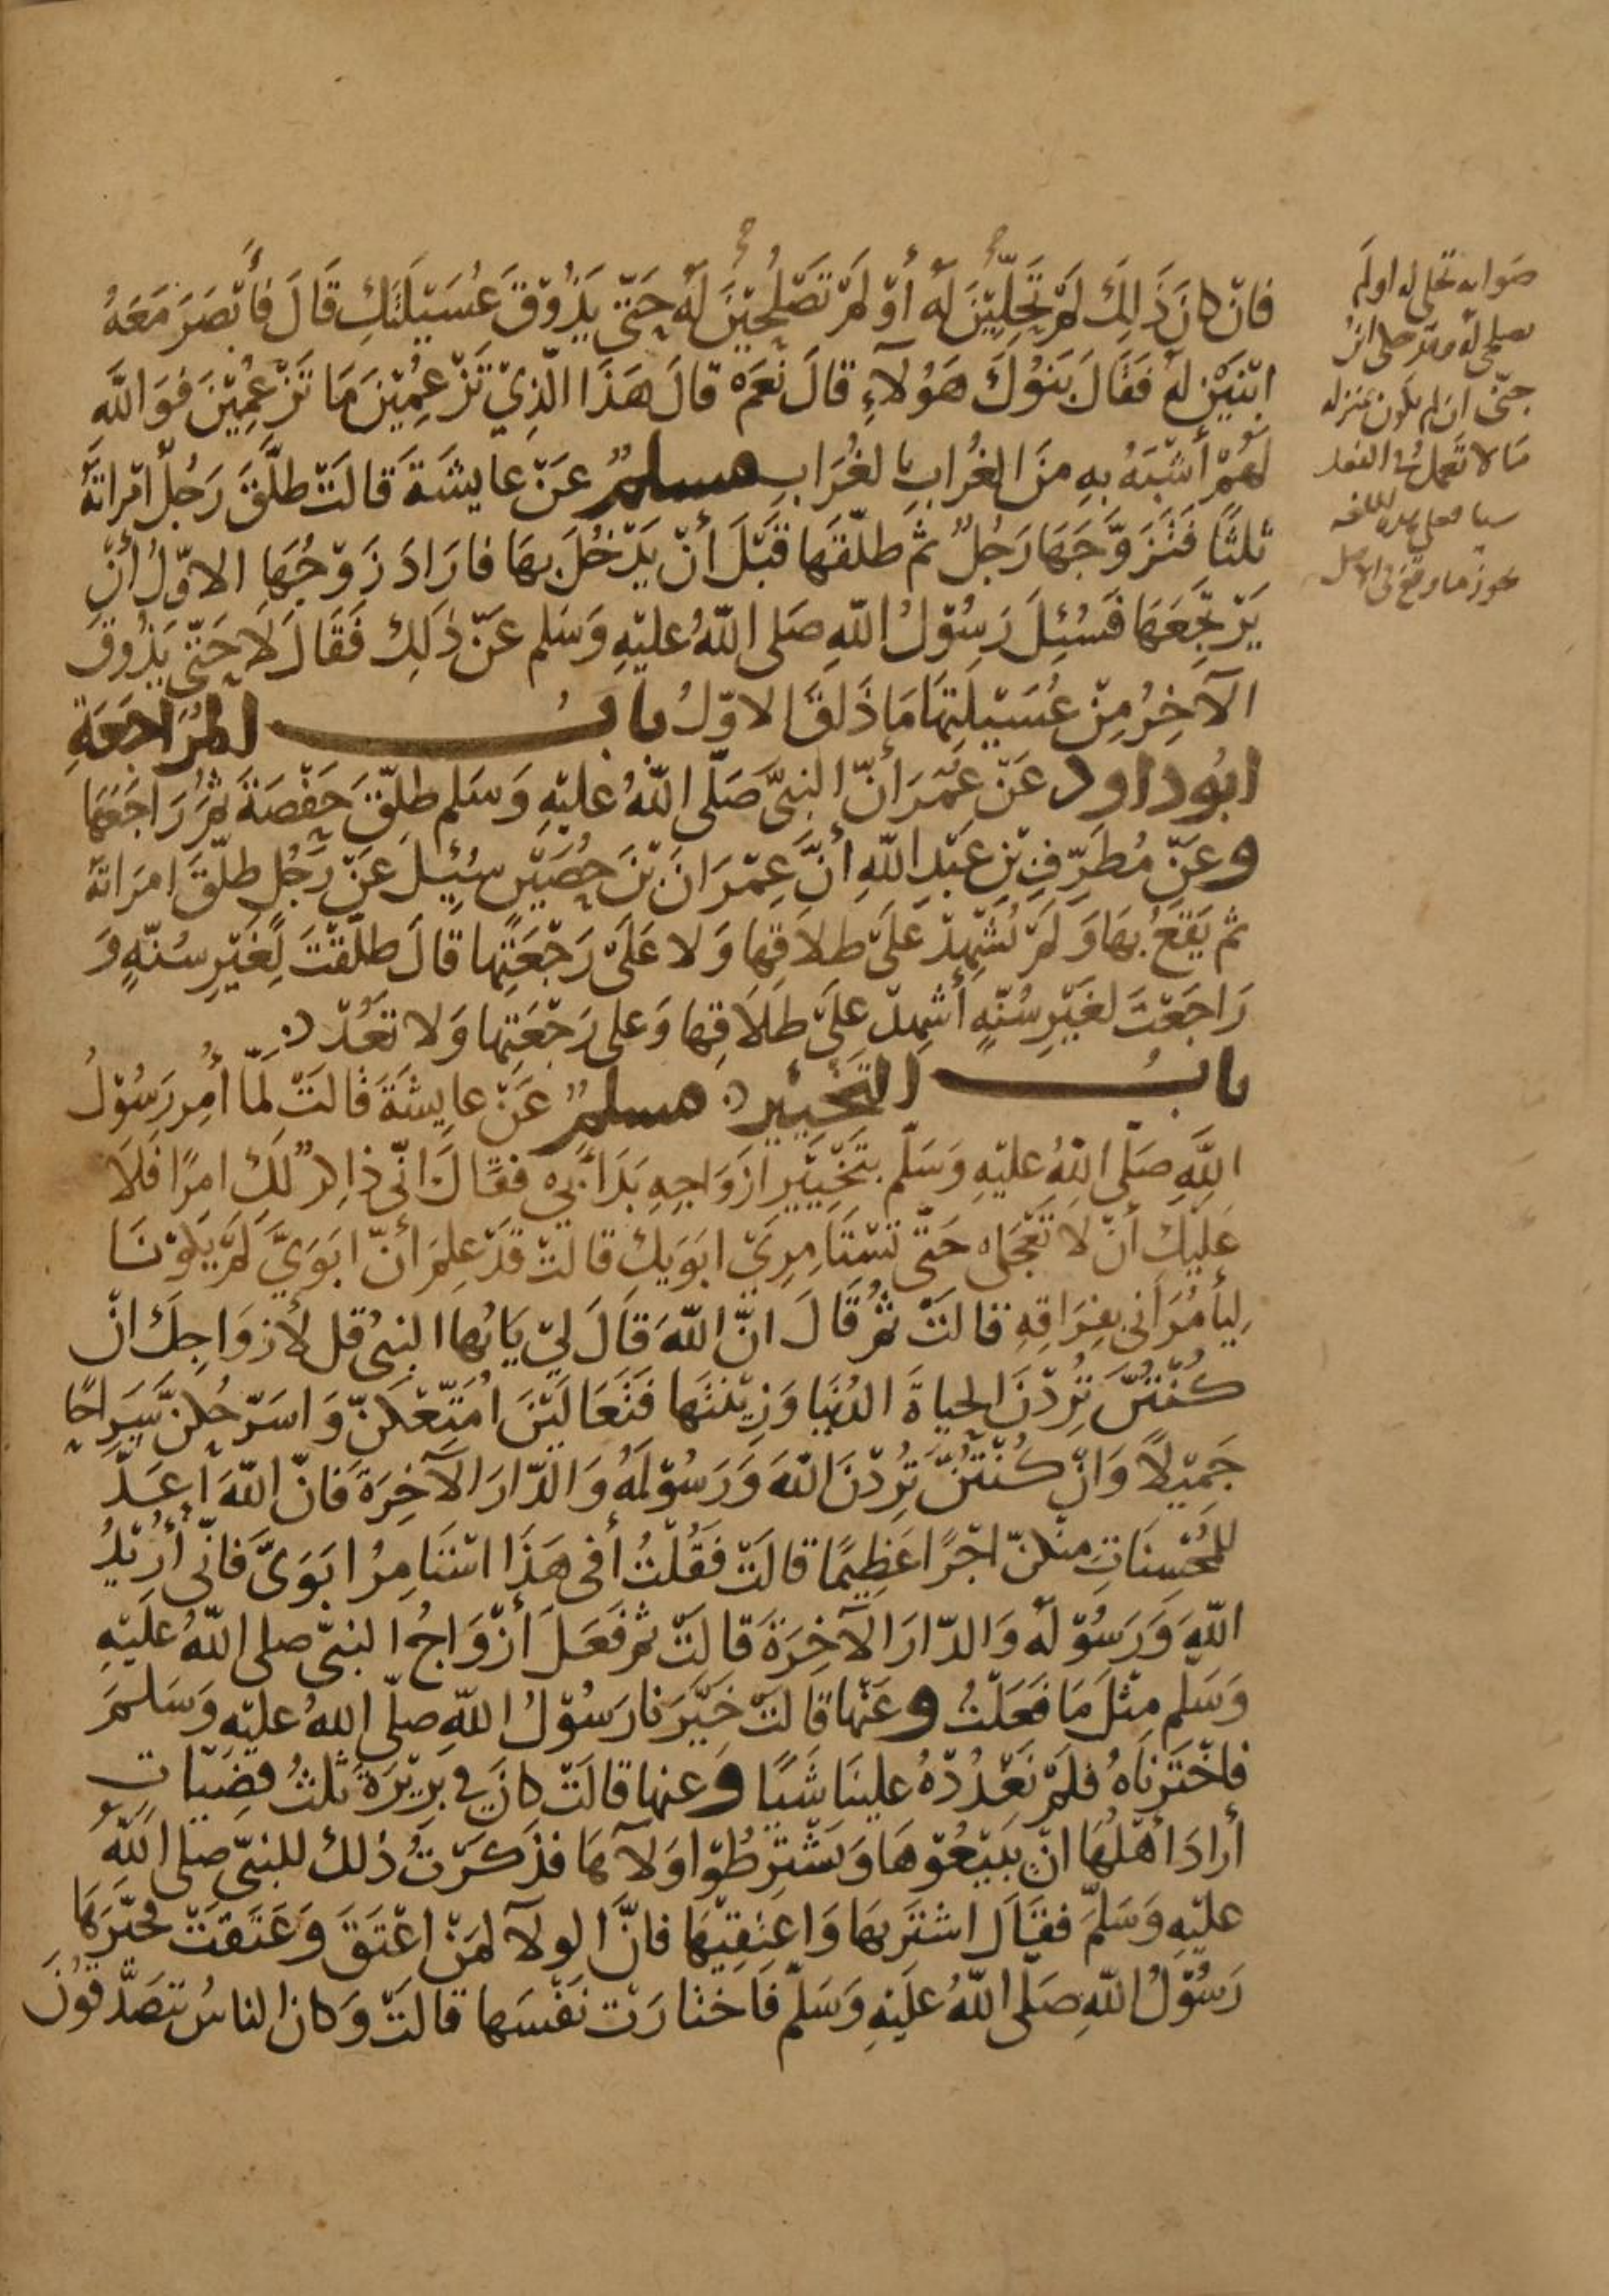 فَانْ كانَ ذَالِكَ لَمْ تَحِلِّيْنَ لَهُ أَوْ لَمْ تَصْلُحِيْنَ لَهُ حَتّى يَذُوْقَ عُسَيْلَتَكِ قَالَ فَأَبْصَرَ مَعَهُ
ابْنَيْنِ لهُ فَقَالَ بَنُوْكَ هَؤُلَآءِ قالَ نَعَمْ قالَ هَذَا الّذِيْ تَزْعُمِيْنَ مَا تَزْعُمِيْنَ فَوَاللهِ
لَهُمْ أَشْبَهُ بهِ منَ الغُرَابِ بالغُرَابِ مسلمٌ عَنْ عايشَةَ قَالَتْ طلَّقَ رَجُلٌ امْرَاتَهُ
ثلثًا فَتَزَوَّجَهَا رَجُلٌ ثم طلّقَها قَبْلَ أنْ يَدْخُلَ بهَا فارَادَ زَوْجُهَا الاوّلُ أنْ
يَرْتَجِعَهَا فَسُئِلَ رَسُوْلُ اللهِ صَلى اللهُ عليْهِ وَسَلم عَنْ ذٰلِكَ فَقَالَ لَا حَتّى يَذُوقَ
الآخِرُ مِنْ عُسَيْلتِهَا مَا ذَاقَ الاوّلُ بابُ المُرَاجَعَةِ
ابُو داود عَنْ عمَرَ أنّ النبيَّ صَلّى اللهُ عليْهِ وَسَلم طلّقَ حَفْصَةَ ثمَّ رَاجَعَهَا
وعَنْ مُطَرِّفِ بْنِ عَبْدِ اللهِ أنَّ عِمْرَانَ بْنَ حُصَيْنٍ سُئِلَ عَنْ رَجُلٍ طلّقَ امرَاتَهُ
ثم يَقَعُ بهَا وَلَمْ يُشْهِدْ عَلَى طلاقِها وَلا عَلَى رَجْعَتِها قالَ طلّقْتَ لِغَيْرِ سُنّةٍ وَ
رَاجَعْتَ لغَيْرِ سُنّةٍ أَشْهِدْ عَلَى طلَاقِها وَعلى رَجْعَتِها وَلا تَعُدْ
بابُ التَّخْيِيْرِ مسلمٌ عَنْ عايشَةَ قالَتْ لَمّا أُمِرَ رَسُوْلُ
اللهِ صَلّى اللهُ عليْهِ وَسَلّم بتَخْيِيْرِ ازوَاجِهِ بَدَأ بي فقَالَ انّى ذاكِرٌ لَكِ امرًا فَلَا
عَلَيْك أنْ لا تَعْجَلى حَتّى تسْتَامِرِيْ ابوَيكِ قالَتْ قَدْ عَلِمَ أنّ ابَوَيَّ لمْ يَكُوْنَا
لِيأمُرَانى بفِرَاقِهِ قالَتْ ثمَّ قَالَ انَّ اللهَ قَالَ لِيْ يَايُها النبىُّ قل لأزوَاجِكَ انْ
كُنْتُنَّ تُرِدْنَ الحياةَ الدُنْيَا وَزِيْنَتَها فَتَعَالَيْنَ امَتِّعْكُنّ وَاسَرّحْكُنَّ سَرَاحًا
جَمِيْلًا وَانْ كُنْتُنَّ تُرِدْنَ اللهَ وَرَسُوْلَهُ وَالدّارَ الآخِرَةَ فَانّ اللهَ أعَدَّ
للمُحْسِنَاتِ منْكُنّ اجْرًا عَظِيمًا قالَتْ فَقُلْتُ أفى هَذَا اسْتَامِرُ ابَوَيَّ فانّى أُرِيْدُ
اللهَ وَرَسُوْلَهُ وَالدّارَ الآخِرَةَ قالَتْ ثم فَعَلَ أزْوَاجُ النبيّ صلى اللهُ عليْهِ
وَسَلّم مِثْلَ مَا فَعَلْتُ وعَنْها قالَتْ خَيَّرَنا رَسُوْلُ اللهِ صلّى اللهُ عليْهِ وَسَلمَ
فاخْتَرْنَاهُ فلَمْ نَعْدُدْهُ علينَا شَيًا وعنها قالَتْ كانَ في بَرِيْرَةَ ثلثُ قضِيّاتٍ
أرادَ أهْلُهَا انْ يَبيْعُوْهَا وَيَشْتَرِطُوْا وَلآءهَا فذَكَرْتُ ذٰلك للنبيّ صلى اللهُ
عليْهِ وَسَلَّمَ فقَالَ اشتَرِيهَا وَاعتِقِيْهَا فانَّ الولآء لمَنْ اعْتَقَ وَعَتَقَتْ فخيَّرَهَا
رَسُوْلُ اللهِ صَلّى اللهُ عَلَيْهِ وَسَلّم فَاخْتارَتْ نَفْسَها قالَتْ وَكانَ الناسُ يتَصَدَّقُوْنَ
صَوابه تحلى له او لم
تصلحى له
حتّى ان لم تكون بمنزله
مَا لا تعمل فى الفعل